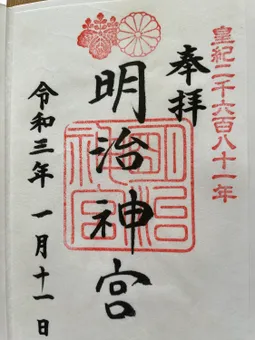 皇紀二千六百八十一年
奉拝
明治神宮
明治神宮
令和三年 一月十一日